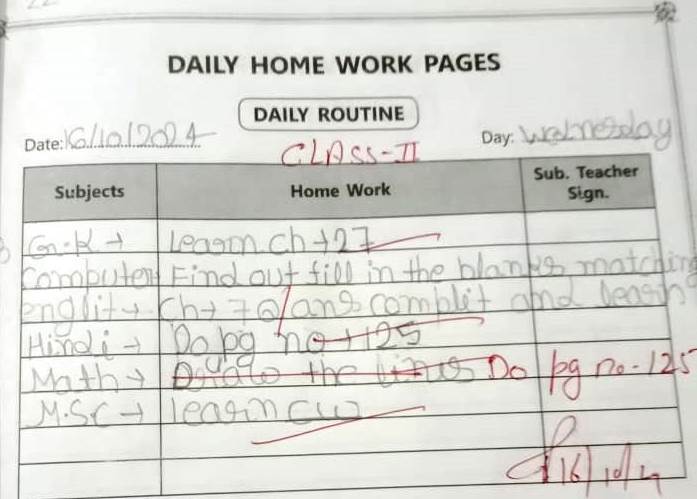 DAILY HOME WORK PAGES
DAILY ROUTINE
Date: 16/10/2024 Day: Wednesday
CLASS-II
Subjects Home Work Sub. Teacher Sign.
G.K → Learn Ch → 27
Computer Find out fill in the blanks matching
englit → Ch → 7 Q/ans complit and learn
Hindi → Do pg no → 125
Math → the Do pg no - 125
M.SC → learn CW
16/10/24